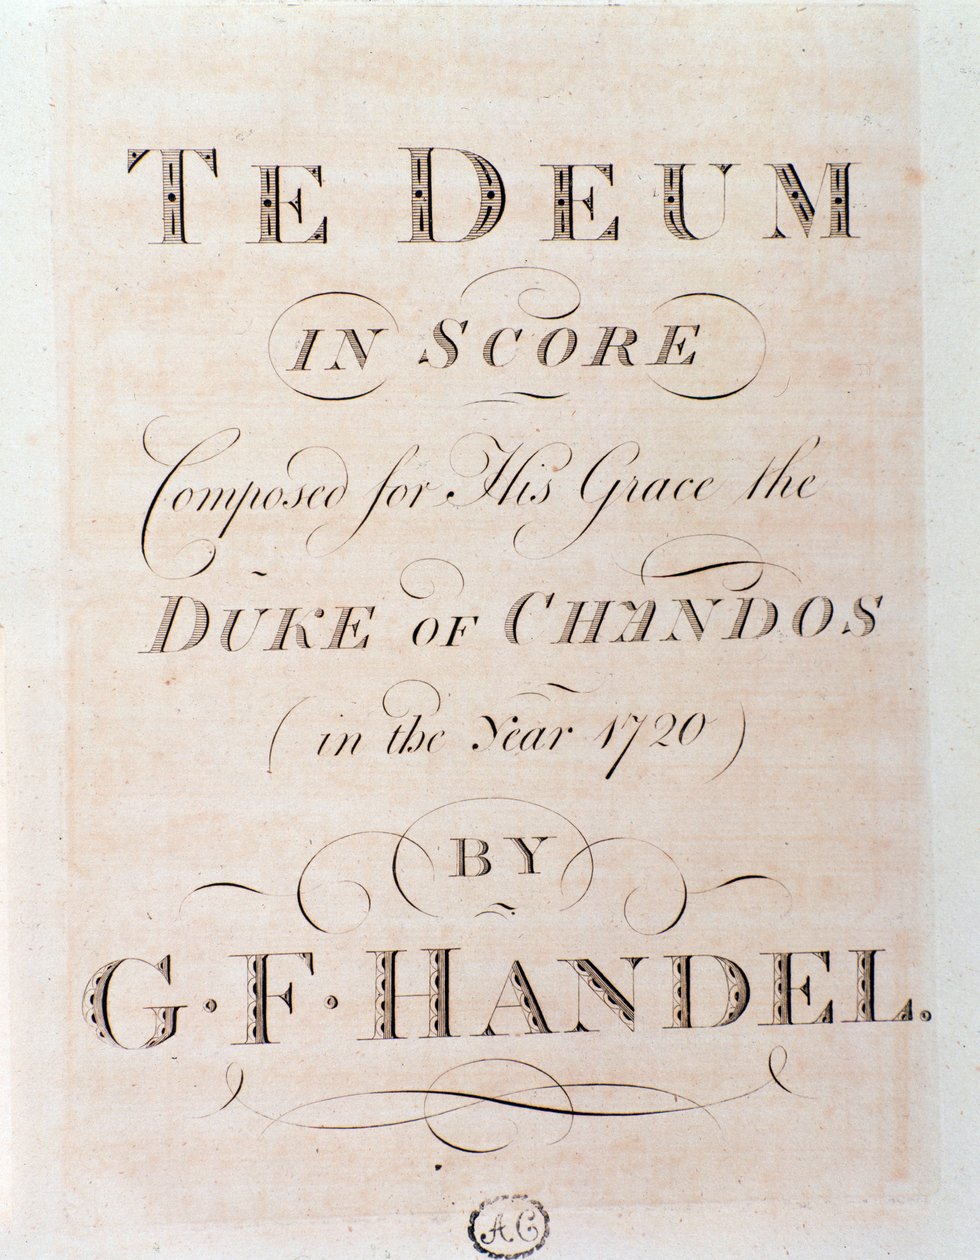 TE DEUM
IN SCORE
Composed for His Grace the
DUKE OF CHANDOS
(in the Year 1720)
BY
G·F·HANDEL.
AC